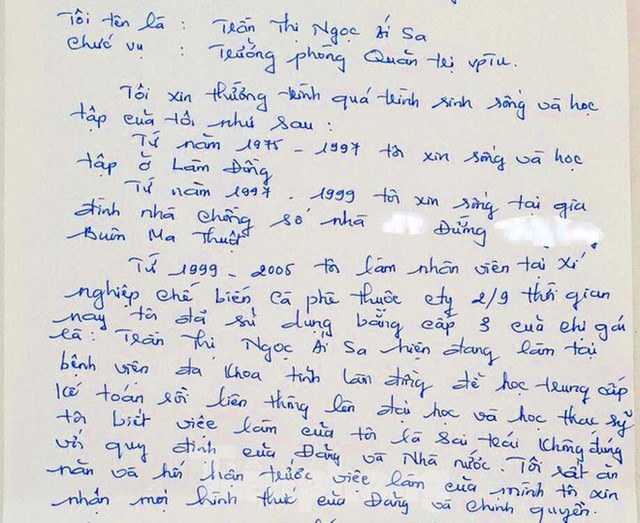 Tôi tên là : Trần Thị Ngọc Ái Sa
Chức vụ : Trưởng phòng Quản trị VPTU.
Tôi xin tường trình quá trình sinh sống và học
tập của tôi như sau :
Từ năm 1975 - 1997 tôi xin sống và học
tập ở Lâm Đồng
Từ năm 1997 - 1999 tôi xin sống tại gia
đình nhà chồng số nhà Đường
Buôn Ma Thuột
Từ 1999 - 2005 tôi làm nhân viên tại Xí
nghiệp chế biến cà phê thuộc cty 2/9 thời gian
này tôi đã sử dụng bằng cấp 3 của chị gái
là : Trần Thị Ngọc Ái Sa hiện đang làm tại
bệnh viện đa khoa tỉnh Lâm đồng để học trung cấp
kế toán rồi liên thông lên đại học và học thạc sỹ
tôi biết việc làm của tôi là sai trái không đúng
với quy định của Đảng và Nhà nước. Tôi rất ăn
năn và hối hận trước việc làm của mình tôi xin
nhận mọi hình thức của Đảng và chính quyền.